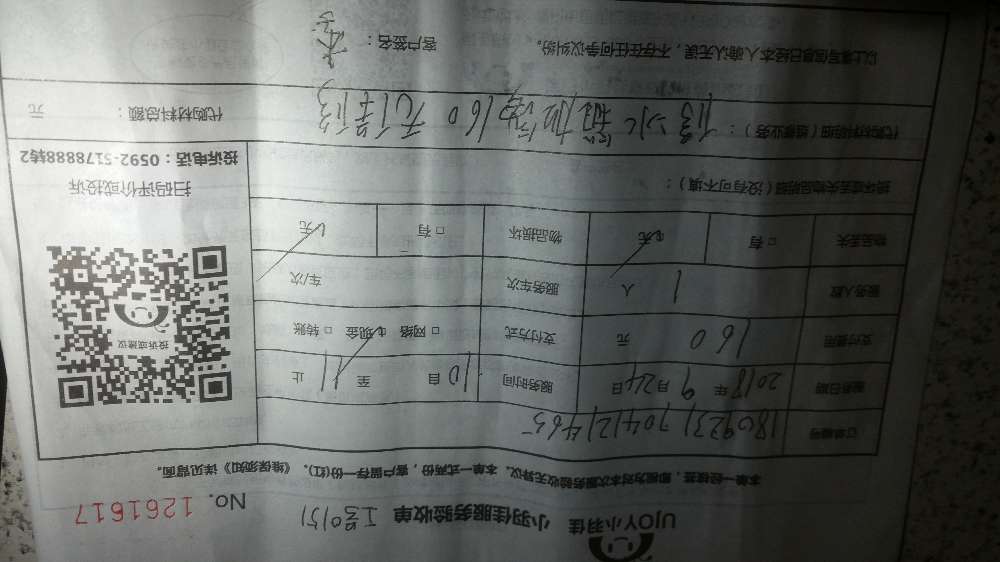 UJOY小羽佳 小羽佳服务验收单 工号0151 No. 1261617
本单一经核签，即视为对本次服务验收无异议。本单一式两份，客户留存一份(红)。《维保须知》详见背面。
订单编号 180923170412465
服务日期 2018年9月24日 服务时间 10 自 至 11 止
支付费用 160 元 支付方式 □ 网络 □ 现金 □ 转账
服务人数 1 人 服务车次 车/次
物品丢失 □ 有 □ 无 物品损坏 □ 有 □ 无
损坏或丢失物品明细（没有可不填）：
投诉或建议
扫码评价或投诉
投诉电话：0592-5178888转2
代购材料明细（维修业务）： 修冰箱 160元
代购材料总额： 元
以上填写信息已经本人确认无误，不存在任何争议纠纷。 客户签名：